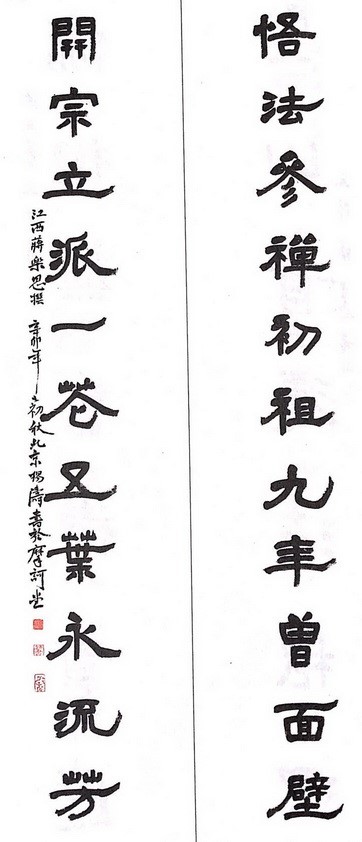 恪法參禪初祖九年曾面壁
開宗立派一花五葉永流芳
江西蔣樂思撰 辛卯年之初秋北京楊濤書於摩訶堂